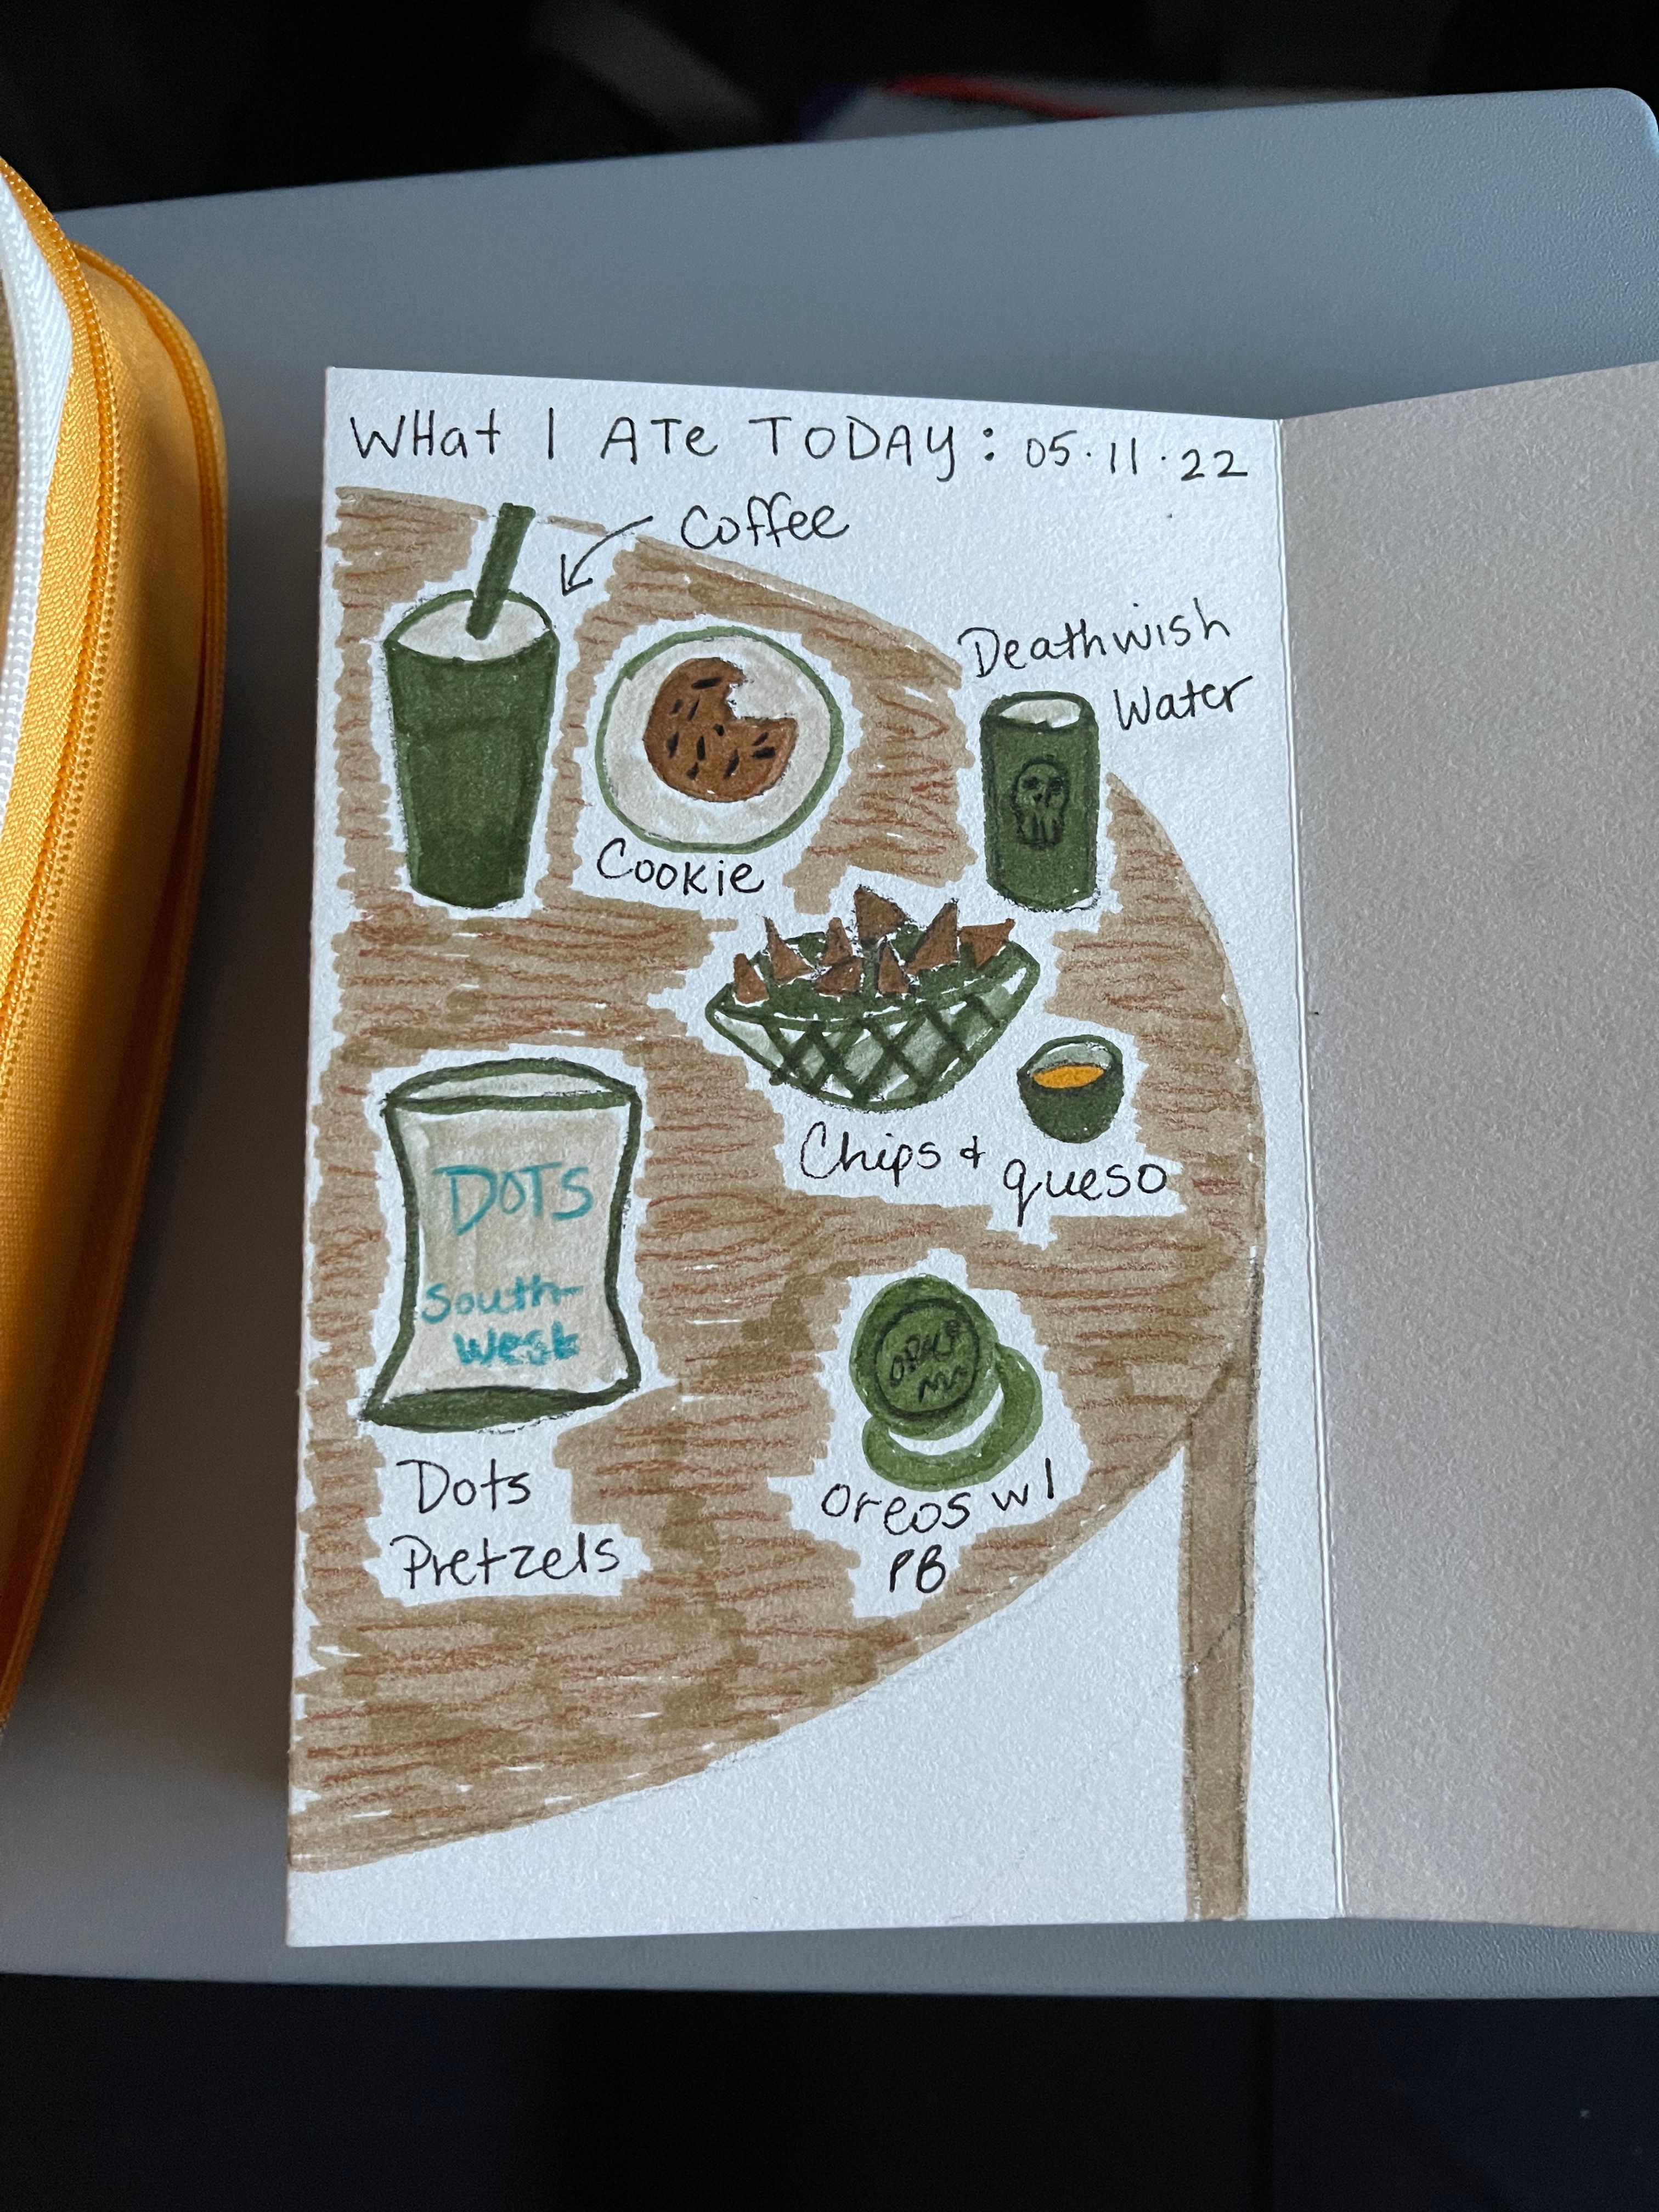 WHat I ATe TODAY: 05.11.22
Coffee
Deathwish
Water
Cookie
Chips + queso
DOTS
South-
West
Dots
Pretzels
OREO
oreos w/
PB